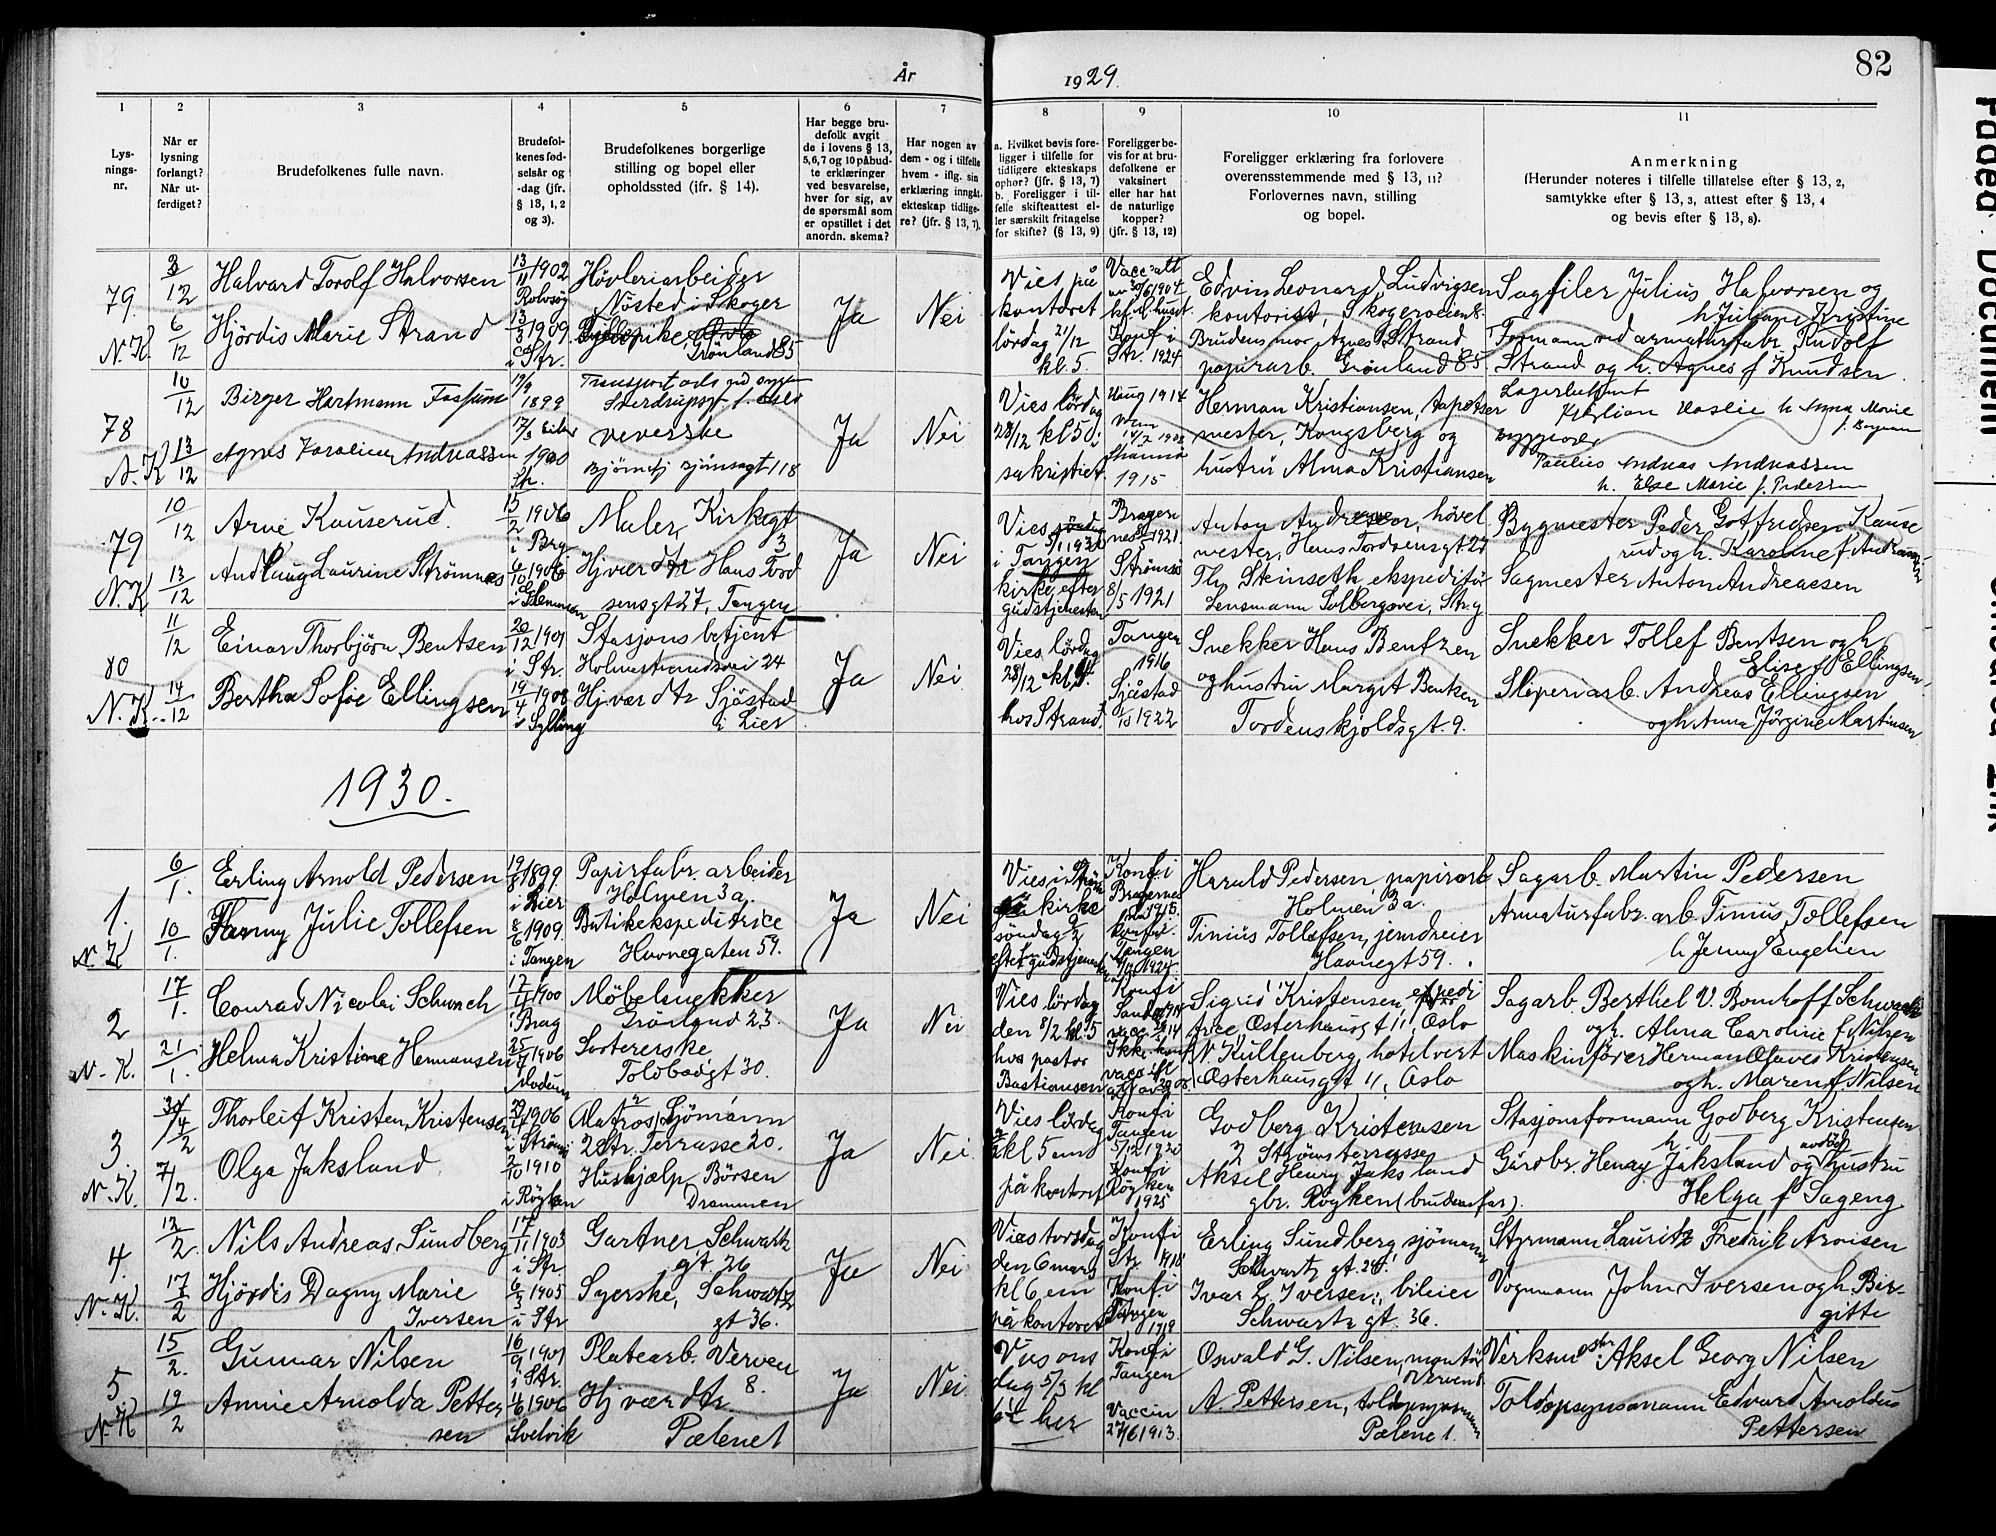 82
År
1929.
1
2
3
4
5
6
7
8
9
10
11
Lys-
nings-
nr.
Når er
lysning
forlangt?
Når ut-
ferdiget?
Brudefolkenes fulle navn.
Brudefol-
kenes fød-
selsår og
-dag (jfr.
§ 13, 1, 2
og 3).
Brudefolkenes borgerlige
stilling og bopel eller
opholdssted (ifr. § 14).
Har begge bru-
defolk avgit
de i lovens § 13,
5, 6, 7 og 10 påbud-
te erklæringer
ved besvarelse,
hver for sig, av
de spørsmål som
er opstillet i det
anordn. skema?
Har nogen av
dem - og i tilfelle
hvem - iflg. sin
erklæring inngåt
ekteskap tidlige-
re? (jfr. § 13, 7).
a. Hvilket bevis fore-
ligger i tilfelle for
tidligere ekteskaps
ophør? (jfr. § 13, 7)
b. Foreligger i til-
felle skifteattest el-
ler særskilt fritagelse
for skifte? (§ 13, 9)
Foreligger be-
vis for at bru-
defolkene er
vaksinert
eller har hat
de naturlige
kopper?
(jfr. § 13, 12)
Foreligger erklæring fra forlovere
overensstemmende med § 13, 11?
Forlovernes navn, stilling
og bopel.
Anmerkning
(Herunder noteres i tilfelle tillatelse efter § 13, 2,
samtykke efter § 13, 3, attest efter § 13, 4
og bevis efter § 13, 8).
79
N.K.
3/12
6/12
Halvard Torolf Halvorsen
Hjördis Marie Strand
13/11 1902
Rolvsøy
13/3 1909
i Str.
Høvleriarbeider
Nøsted i Skoger
Grønland 85
Ja
Nei
Vies på
kontoret
lördag 21/12
kl. 5.
Konf i
Str. 1924
Edvin Leonard Ludvigsen
kontorist, Skogerveien 8.
Brudens mor Agnes Strand
papirarb. Grønland 85
Sagfiler Julius Halvorsen og
h Juliane Kristine
Formann ved armaturfabr. Rudolf
Strand og h. Agnes f Knudsen
78
N.K
10/12
13/12
Birger Hartmann Fossum
Agnes Karoline Andreassen
19/9
1899
17/3
1900
Str.
Oslo
veverske
Bjørnsgt 118
Ja
Nei
Vies lörd
28/12 kl 5 i
sakristiet.
1914
1915
Herman Kristiansen, tapetser
mester, Kongsberg og
hustru Alma Kristiansen
Paulius Andreas Andreassen
h. Else Marie f. Pedersen
79
N.K
10/12
13/12
Arne Kauserud.
Andlaug Laurine Strömnes
15/2 1906
i Brg
4/10 1906
Maler, Kirkegt
3
Hj vær dtr Hans Tord
sensgt 27, Tangen
Ja
Nei
Vies
5/1 1930
i Tangen
kirke efter
gudstjenesten
Bragern
1921.
Strömsö
8/5 1921
Anton Andresen, høvel
mester, Hans Tordsensgt 27
Th. Steinseth ekspeditør
Lensmann Solbergsvei, Str.g
Bygmester Peder Gotfredsen Kause
rud og h. Karoline f Andreassen
Sagmester Anton Andreassen
80
N.K.
11/12
14/12
Einar Thorbjörn Bentsen
Bertha Sofie Ellingsen
20/12 1901
i Str.
19/4 1908
i Sylling
Stasjonsbetjent
Holmestrandsvei 24
Hj vær dtr Sjåstad
i Lier
Ja
Nei
Vies lördag
28/12 kl. 4
hos Strand
Tangen
1916
Sjåstad
1/10 1922
Snekker Hans Bentzen
og hustru Margit Bentzen
Tordenskjoldsgt. 9.
Snekker Tollef Bentsen og h
Elise f Ellingsen
Sliperiarb. Andreas Ellingsen
og h. Anna Jörgine Martinsen
1930.
1.
N.K
6/1.
10/1.
Erling Arnold Pedersen
Fanny Julie Tollefsen
19/8 1899.
i Lier
8/6 1909.
i Tangen
Papirfabr. arbeider
Holmen 3a.
Butikekspeditrice
Havnegaten 59.
Ja
Nei
Vies i Ström
kirke
söndag
efter gudstjenesten
Konf i
Bragernes
1915.
Konf i
Tangen
1924.
Harald Pedersen, papirarb
Holmen 3a.
Tinius Tollefsen, jerndreier
Havnegt 59.
Sagarb. Martin Pedersen
Armaturfabr. arb. Tinius Tollefsen
h Jenny Engelien
2
N.K.
17/1.
21/1.
Conrad Nicolai Schwach
Helma Kristine Hermansen
1900
i Brag
25/4 1906
Modum
Möbelsnekker
Grönland 23.
Sortererske
Toldbodgt 30.
Ja
Nei
Vies lördag
den 8/2 kl. 5
hos pastor
Bastiansen
Konf i
Ikke konf
Sigrid Kristensen, ekspedi
trice, Osterhausgt 11, Oslo
N. Kullenberg, hotelvert
Osterhausgt 11, Oslo
Sagarb. Berthel V. Bomhoff Schwach
og h. Alma Caroline f Nilsen
Maskinfører Herman Olaves Kristensen
og h. Maren f. Nilsen
3
N.K.
4/2
7/2.
Thorleif Kristen Kristensen
Olga Jaksland
1906
i Strömsö
1910
i Röyken
Matros, Sjömann
2 Str. Terrasse 20.
Hushjælp, Börsen
Drammen
Ja
Nei
Vies lördag
kl 5 em
på kontoret
Konf i
Tangen
1920
Konfi
Røyken
1925
Godberg Kristensen
2 Strömsterrasse
Aksel Henry Jaksland
gbr. Røyken (brudens far)
Stasjonsformann Godberg Kristensen
h
Gårdbr. Henry Jaksland og avdöd hustru
Helga f Sageng
4.
N.K.
12/2.
17/2
Nils Andreas Sundberg
Hjördis Dagny Marie
Iversen
17/11 1903
i Str.
6/3 1905
i Str
Gartner, Schwartz
gt. 26
Syerske, Schwartz
gt 36.
Ja
Nei
Vies torsdag
den 6 mars
kl 6 em
på kontoret
Konfi
Str. 1918
Konfi
Tangen
1919
Erling Sundberg sjömann
Schwartz gt. 26.
Ivar L. Iversen, bileier
Schwartz gt. 36.
Styrmann Lauritz Fredrik Arvisen
Vognmann John Iversen og h. Bir-
gitte
5
N.K
15/2.
19/2
Gunnar Nilsen
Annie Arnolda Petter
sen
16/9 1901
i Str.
4/6 1906
i Svelvik
Platearb. Verven
8.
Hj vær dtr
Pælene 1
Ja
Nei
Vies ons
dag 5/3 kl
6 1/2 her
Konfi
Tangen
Vaccin
27/6 1913.
Oswald G. Nilsen, montør
Verven 8
A. Pettersen, toldopsynsmann
Pælene 1.
Verksmester Aksel Georg Nilsen
Toldopsynsmann Edvard Arnoldus
Pettersen